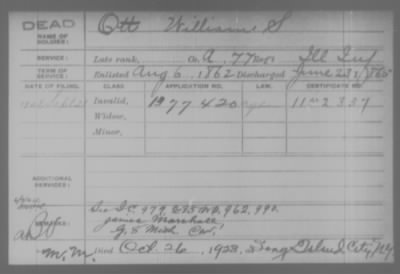 DEAD
NAME OF SOLDIER:
Ott William S
SERVICE:
Late rank, Co. A, 77 Reg't Ill Inf
TERM OF SERVICE:
Enlisted Aug 6, 1862 Discharged June 23, 1865
DATE OF FILING. CLASS. APPLICATION NO. LAW. CERTIFICATE NO.
Invalid, 1977420 1122337
Widow,
Minor,
ADDITIONAL SERVICES:
See I.C. 979,
James Marshall
G. 8 Mich Cav.
REMARKS:
M.M. Died Oct 26, 1923, Long Island City, NY